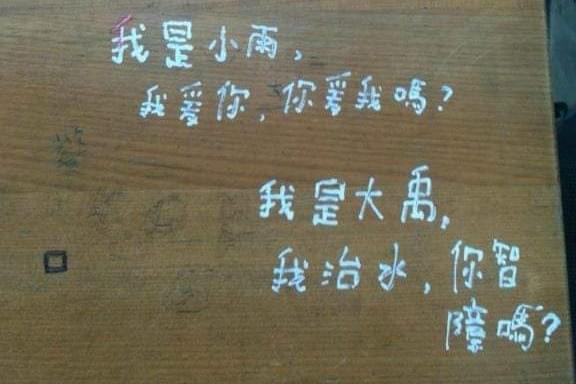 我是小雨,
我爱你,你爱我嗎?
我是大禹,
我治水,你智
障嗎?